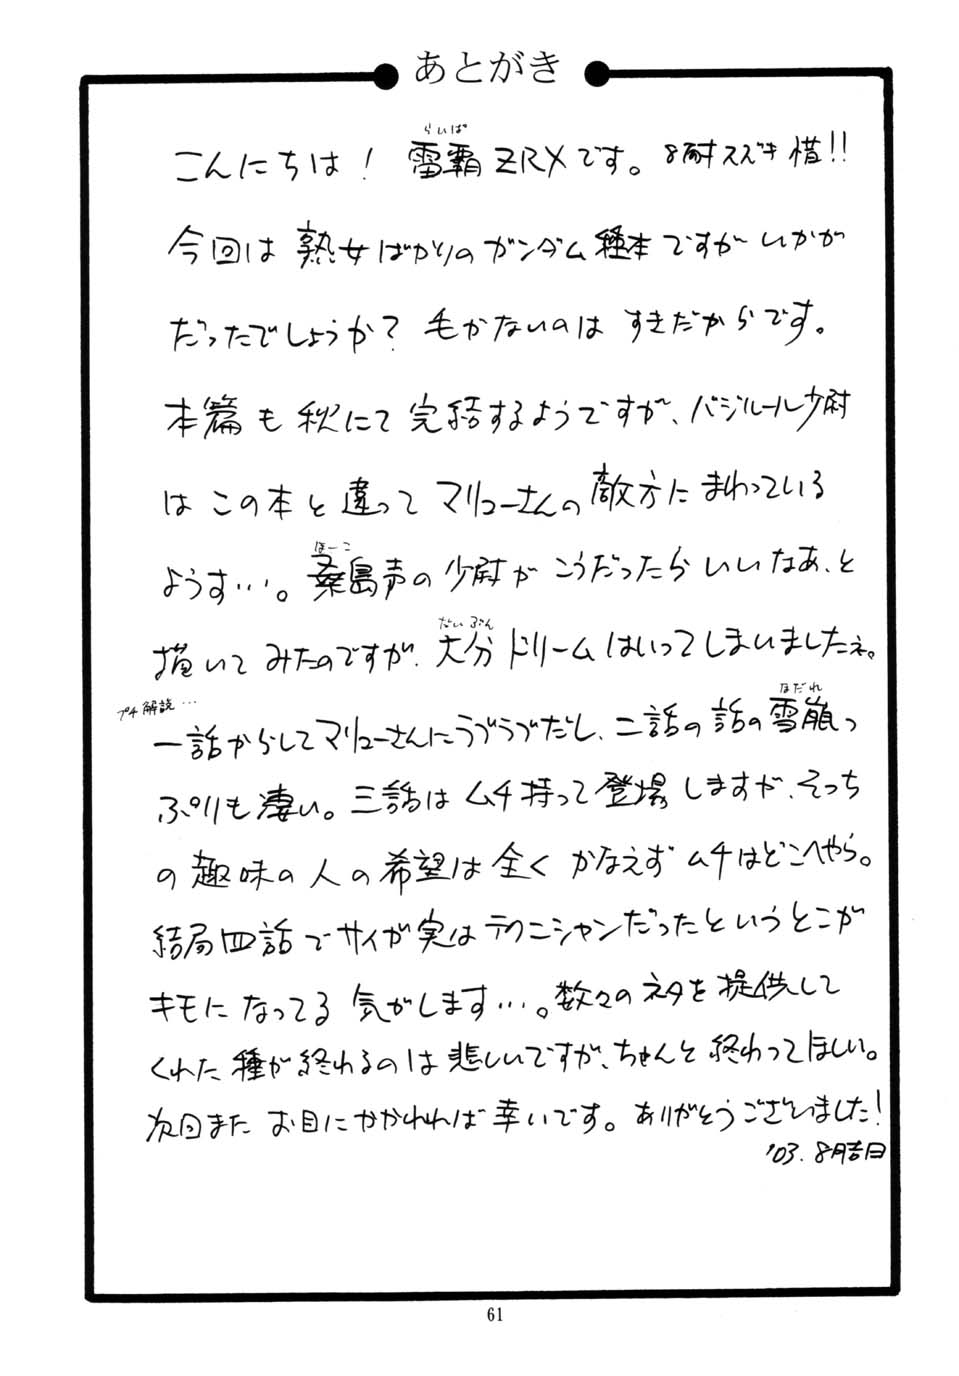 あとがき
らいぱ
こんにちは！ 雷覇ZRXです。 8耐スズキ惜!!
今回は 熟女ばかりのガンダム種本ですが いかが
だったでしょうか？ 毛がないのは すきだからです。
本篇も 秋にて 完結するようですが、バジルール少尉
は この本と 違って マリューさんの 敵方に まわっている
ほーこ
ようす…。桑島声の 少尉が こうだったら いいなあ、と
だいぶん
描いて みたのですが、大分 ドリームはいってしまいましたネ。
プチ解説…
なだれ
一話からして マリューさんにラブラブだし、二話の 話の雪崩っ
ぷりも凄い。三話は ムチ持って 登場しますが、そっち
の 趣味の 人の 希望は 全く かなえず ムチはどこへやら。
結局四話で サイが 実は テクニシャンだったというとこが
キモに なってる 気がします…。数々の ネタを 提供して
くれた 種が 終わるのは 悲しいですが、ちゃんと 終わってほしい。
次回また お目にかかれれば 幸いです。ありがとうございました！
'03. 8月吉日
61